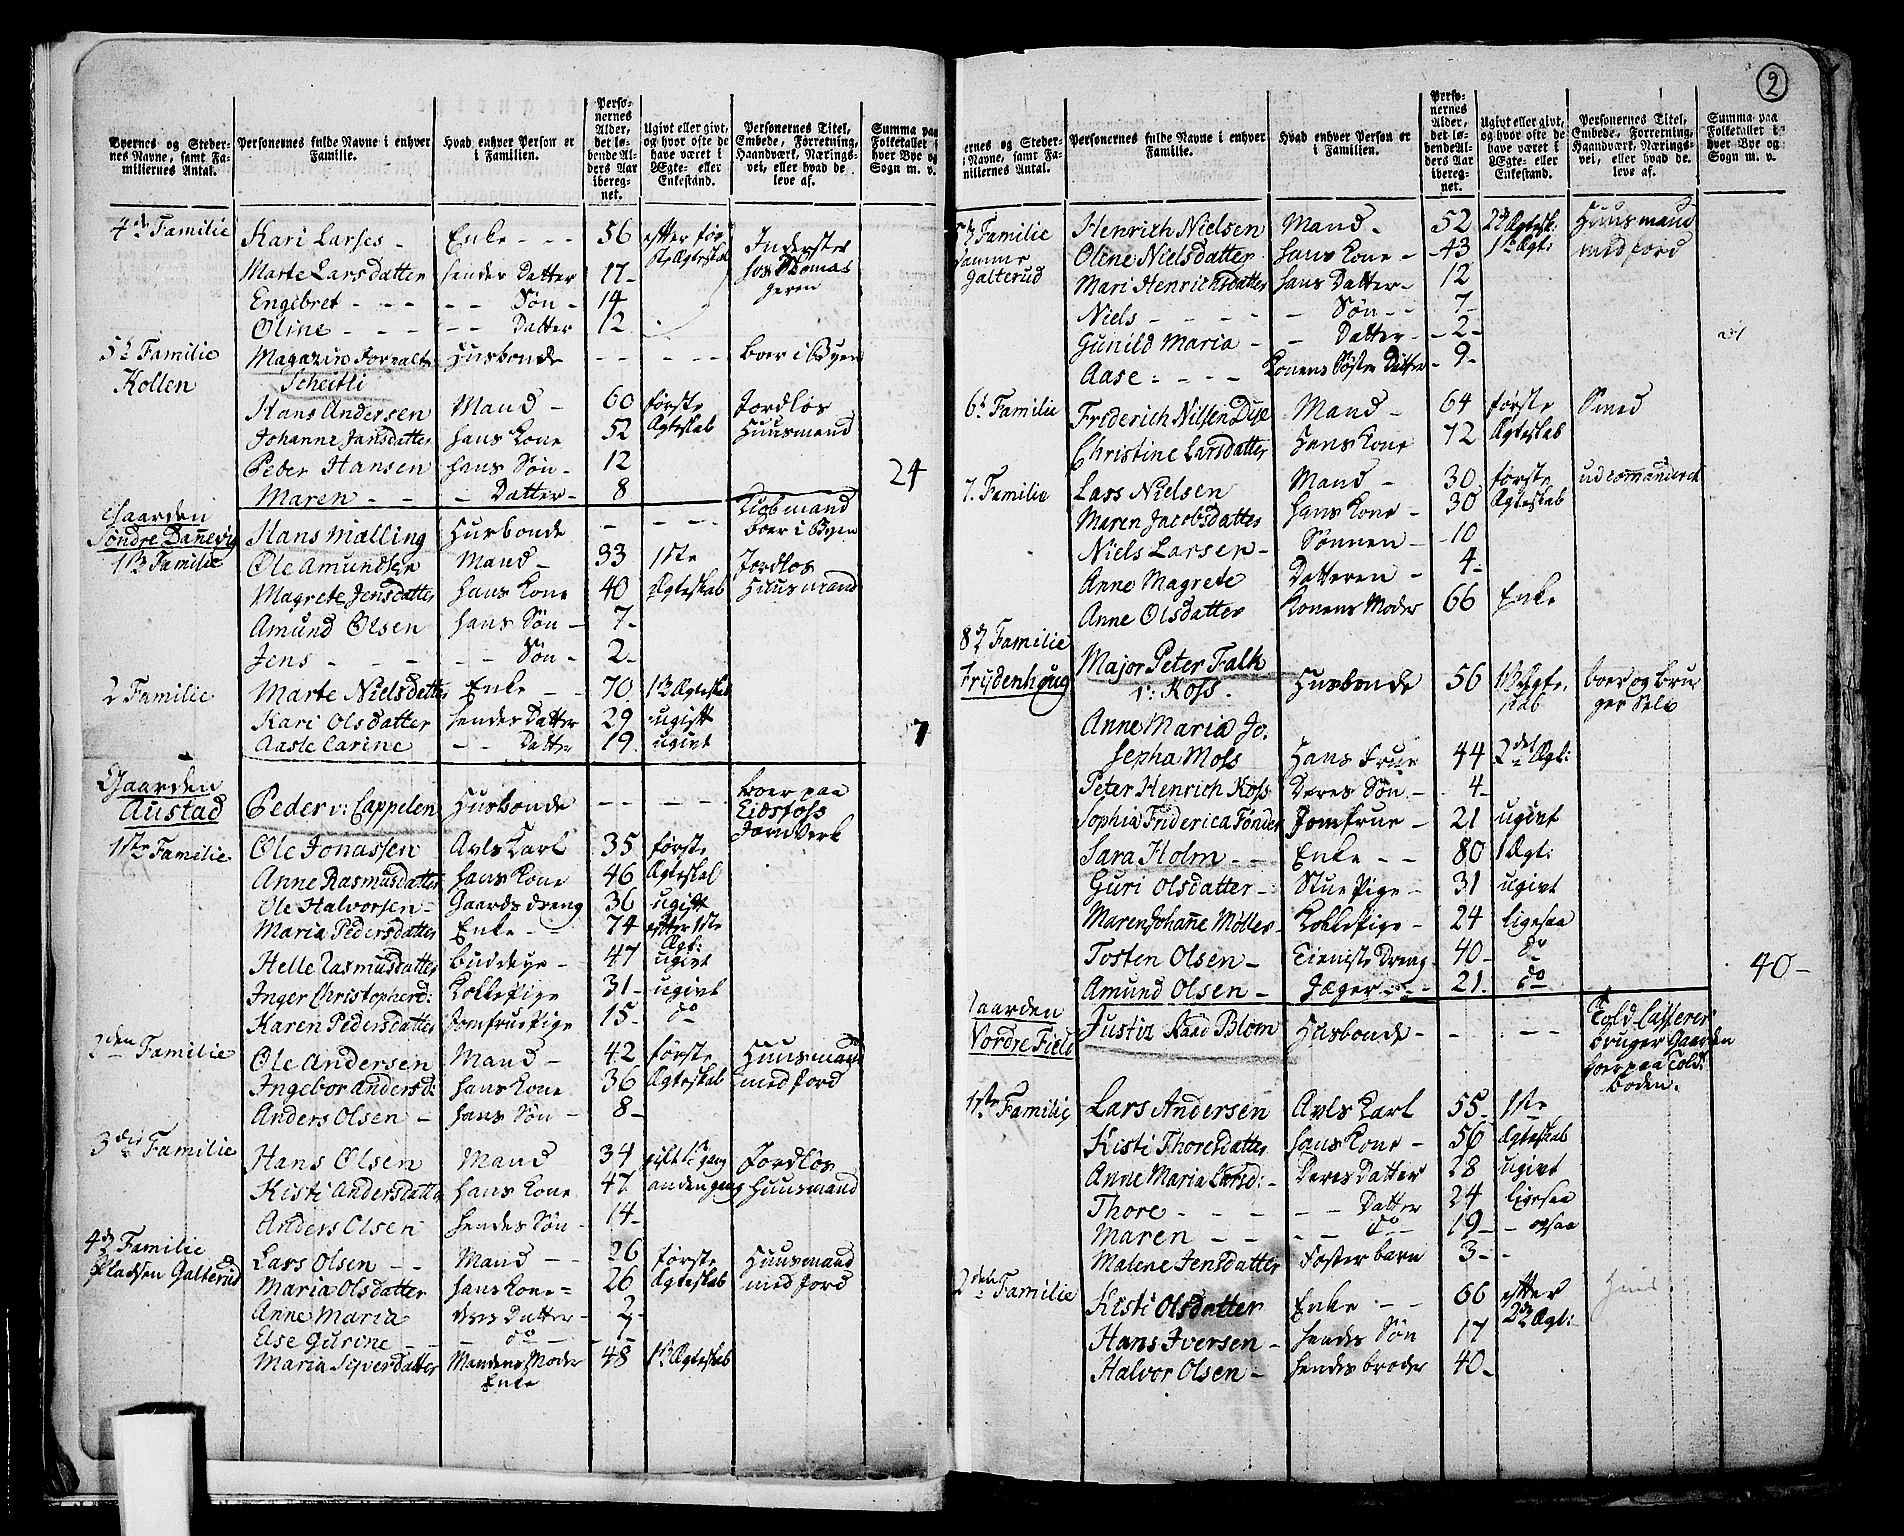 2
Byernes og Stedernes Navne, samt Familiernes Antal. | Personernes fulde Navne i enhver Familie. | Hvad enhver Person er i Familien. | Personernes Alder, det løbende Alders Aar iberegnet. | Ugivt eller givt, og hvor ofte de have været i Ægte- eller Enkestand. | Personernes Titel, Embede, Forretning, Haandværk, Næringsvei, eller hvad de leve af. | Summa paa Folketallet i hver Bye og Sogn m. v.
4de Familie | Kari Larses - | Enke - - - | 56 | efter første Ægteskab | Inderster hos Thomas
Marte Larsdatter | hendes Datter | 17 - | | geren
Engebret - - - | - - Søn - | 14
Oline - - - | - - Datter | 12
5te Familie | Magazin Forvalter | Husbonde | - - | - - - | boer i Byen
Kollen | Scheitli
Hans Andersen | Mand - | 60 | første | Jordløs
Johanne Jansdatter | hans Kone | 52 | Ægteskab | Huusmand
Peder Hansen | hans Søn - | 12 | | | 24
Maren - - | - Datter - | 8
Gaarden | | | | | Kiøbmand
Søndre Dannevig | Hans Mälling | Husbonde | - | - - - | boer i Byen
1ste Familie | Ole Amundsen | Mand - | 33 | 1ste | Jordløs
Magrete Jensdatter | hans Kone | 40 | Ægteskab | Huusmand
Amund Olsen | hans Søn - | 7 -
Jens - - - | - - Søn - | 2 -
2 Familie | Marte Nielsdatter | Enke - - | 70 | 1ste Ægteskab
Kari Olsdatter | hendes Datter | 29 | ugift | | 7
Aaste Carine | - - Datter | 19 | ugivt
Gaarden | | | | | boer paa
Austad | Peder v: Cappelen | Husbonde | - - | - - - | Eidsfoss
Jernverk
1ste Familie | Ole Jonassen | Avls Karl | 35 | første
Anne Rasmusdatter | hans Kone | 46 | Ægteskab
Ole Halvorsen - | Gaardsdreng | 36 | ugift
Maria Pedersdatter | Enke - - | 74 | efter 1ste Ægt:
Helle Rasmusdatter | Buddeye - | 47 | ugivt
Inger Christopherd: | Kokkepige | 31 - | ugivt
Karen Pedersdatter | Jomfrue Pige | 15 - | do
2den Familie | Ole Andersen | Mand - | 42 | første | Huusmand
Ingebor Andersd: | hans Kone | 36 | Ægteskab | med Jord
Anders Olsen - | hans Søn - | 8 -
3die Familie | Hans Olsen | Mand | 34 | gift 1ste gang | Jordløs
Kisti Andersdatter | hans Kone | 47 | anden gang | Huusmand
Anders Olsen | hendes Søn - | 14 -
4de Familie | Lars Olsen - - | Mand - - | 26 | første | Huusmand
Pladsen Galterud | Maria Olsdatter | hans Kone = | 26 | Ægteskab | med Jord
Anne Maria | deres Datter - | 2 -
Else Gurine - - | - do - | 1 -
Maria Siverdatter | Mandens Moder | 48 | 1ste Ægteskab
Enke
Byernes og Stedernes Navne, samt Familiernes Antal. | Personernes fulde Navne i enhver Familie. | Hvad enhver Person er i Familien. | Personernes Alder, det løbende Alders Aar iberegnet. | Ugivt eller givt, og hvor ofte de have været i Ægte- eller Enkestand. | Personernes Titel, Embede, Forretning, Haandværk, Næringsvei, eller hvad de leve af. | Summa paa Folketallet i hver Bye og Sogn m. v.
5te Familie | Henrich Nielsen | Mand - | 52 | 2det Ægtesk: | Huusmand
sammer | Oline Nielsdatter | hans Kone - | 43 | 1ste Ægt: | med Jord
Galterud | Mari Henrichsdatter | hans Datter - | 12
Niels - - - - | - Søn - - | 7 -
Gunild Maria - | - Datter - | 2 -
Aase : - - - | Konens Søster Datter - | 9 -
6te Familie | Friderich Nilsen Dye | Mand - | 64 | første | Smed
Christine Larsdatter | hans Kone | 72 | Ægteskab
7. Familie | Lars Nielsen | Mand - | 30 | første | udcommanderet
Maren Jacobsdatter | hans Kone - | 30 | Ægteskab
Niels Larsen - | Sønnen - | 10
Anne Magrete | Datteren - | 4 -
Anne Olsdatter | Konens Moder | 66 | Enke
8de Familie | Major Peter Falk
Frydenhoug | v: Koss. | Husbonde | 56 | 1ste Ægteskab | boer og bruger selv
Anne Maria Josepha Moss | Hans Frue | 44 | 2det Ægt:
Peter Henrich Koss | Deres Søn - | 4 -
Sophia Friderica Tønder | Jomfrue - | 21 | ugivt
Sara Holm - - | Enke - - | 80 | 1 Ægt:
Guri Olsdatter - | Stue Pige - | 31 | ugivt
Maren Johanne Møller - | Kokkepige - | 24 | ligesaa
Tosten Olsen - | Tieniste Dreng - | 40 - | do | | 40 -
Amund Olsen - | Jæger - - | 21 - | do
Gaarden | | | | | Told Casserer
Nordre Field | Justiz Raad Blom | Husbonde - | - | - - - | bruger Gaarden
boer paa Told:
boden.
1ste Familie | Lars Andersen | Avls Karl | 55 - | 1ste
Kisti Thoresdatter | hans Kone - | 56 | Ægteskab
Anne Maria Larsd: - | Deres Datter | 28 | ugivt
Thore - - - | - - Datter | 24 | ligesaa
Maren - - - | - - do - | 19 - | - ogsaa
Malene Jensdatter | Foster barn | 3 - -
2den Familie | Kisti Olsdatter | Enke - - | 66 | efter 2det Ægt:
Hans Iversen - | hendes Søn | 17
Halvor Olsen - | hendes broder | 40 -